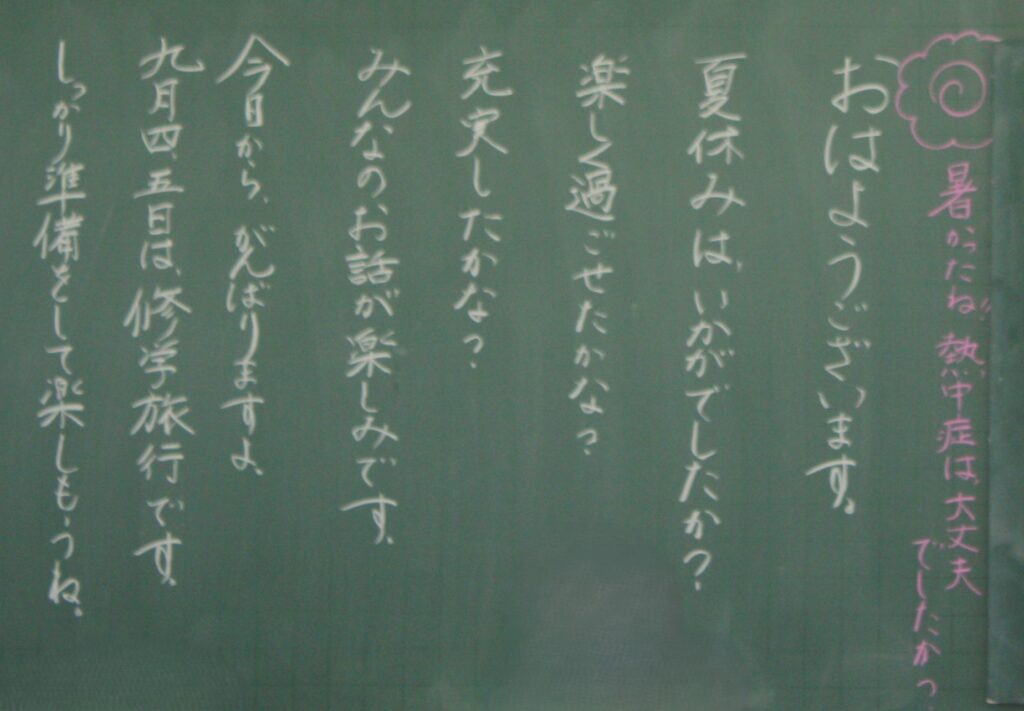 暑かったね!!熱中症は、大丈夫
でしたか?
おはようございます。
夏休みは、いかがでしたか?
楽しく過ごせたかな?
充実したかな?
みんなのお話が楽しみです。
今日から、がんばりますよ。
九月四、五日は、修学旅行です。
しっかり準備をして楽しもうね。